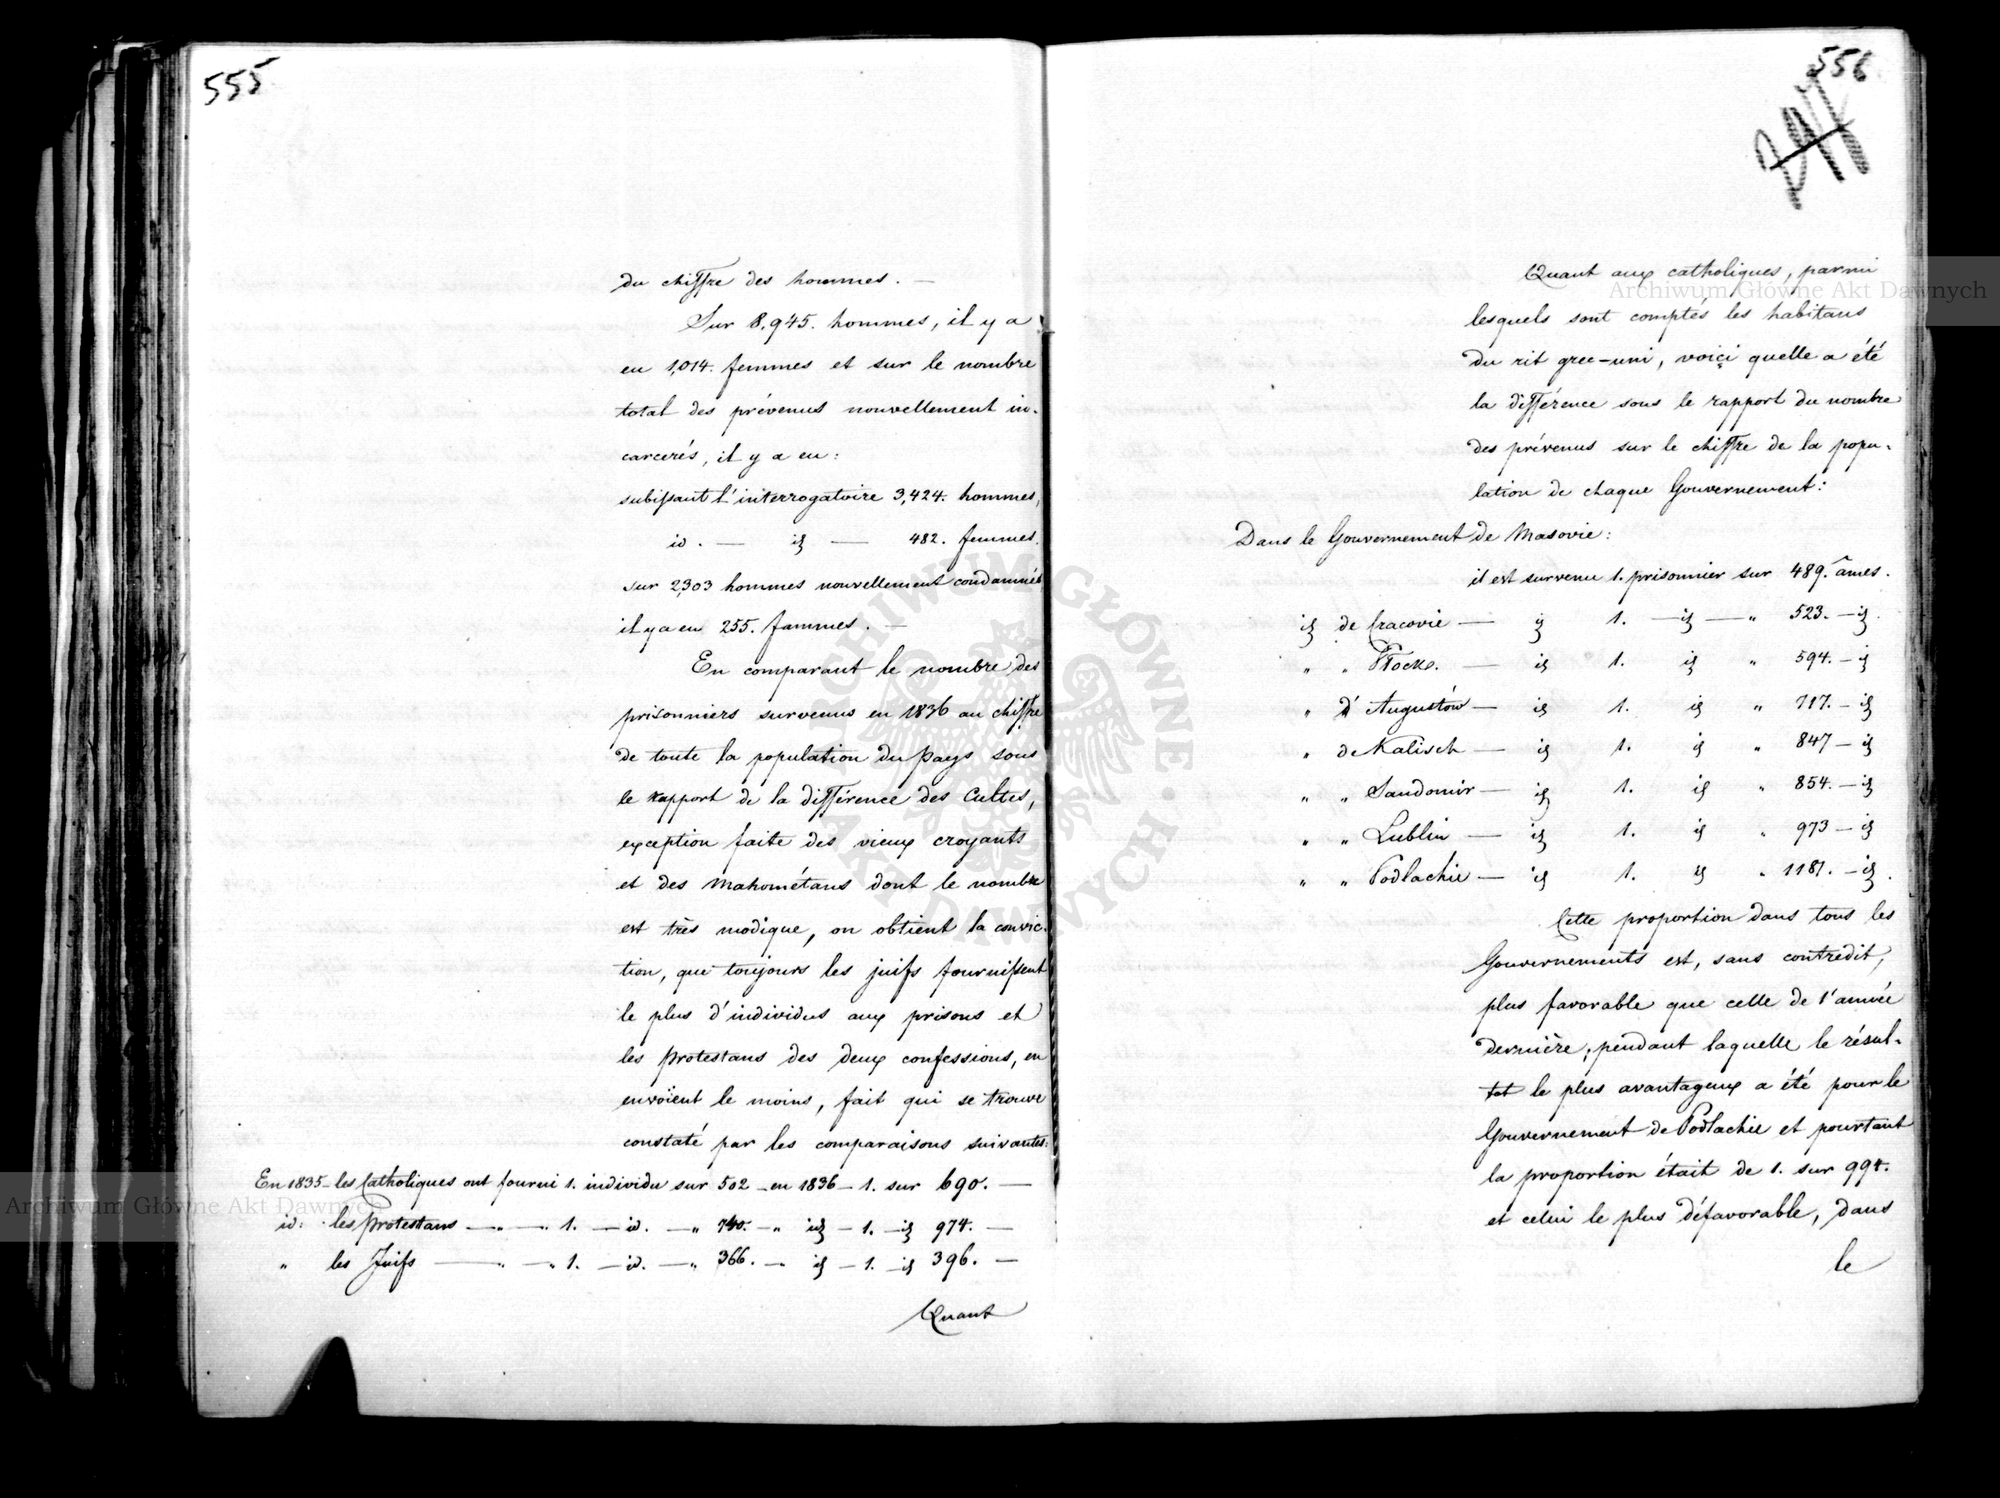 555
du chiffre des hommes. —
Sur 8,945. hommes, il y a
eu 1,014. femmes et sur le nombre
total des prévenus nouvellement in-
carcerés, il y a eu:
subissant l'interrogatoire 3,424. hommes,
id. — id — 482. femmes.
sur 2,303 hommes nouvellement condamnés
il y a eu 255. fammes. —
En comparant le nombre des
prisonniers survenus en 1836 au chiffre
de toute la population du pays sous
le rapport de la différence des Cultes,
exception faite des vieux croyants
et des Mahométans dont le nombre
est très modique, on obtient la convic-
tion, que toujours les juifs fournissent
le plus d'individus aux prisons et
les protestans des deux confessions, en
envoïent le moins, fait qui se trouve
constaté par les comparaisons suivantes:
En 1835 – les Catholiques ont fourni 1. individu sur 502 – en 1836 – 1. sur 690. —
id: les Protestans — " — " 1. — id. — " 740. – " id – 1. – id 974. —
" les Juifs — " — " 1. — id. — " 366. – " id – 1. – id 396. —
Quant
556
Quant aux catholiques, parmi
lesquels sont comptés les habitans
du rit grec-uni, voiçi quelle a été
la différence sous le rapport du nombre
des prévenus sur le chiffre de la popu-
lation de chaque Gouvernement:
Dans le Gouvernement de Masovie:
il est survenu 1. prisonnier sur 489. âmes.
id de Cracovie — id 1. — id — " 523. — id.
" " Płock. — id 1. id " 594. — id
" d'Augustów — id 1. id " 717. — id
" de Kalisch — id 1. id " 847 — id
" " Sandomir — id 1. id " 854. — id
" " Lublin — id 1. id " 973 — id
" " Podlachie — id 1. id " 1187. — id.
Cette proportion dans tous les
Gouvernements est, sans contredit,
plus favorable que celle de l'année
dernière, pendant laquelle le résul-
tat le plus avantageux a été pour le
Gouvernement de Podlachie et pourtant
la proportion était de 1. sur 994.
et celui le plus défavorable, dans
le
Archiwum Główne Akt Dawnych
Archiwum Główne Akt Dawnych
ARCHIWUM GŁÓWNE · AKT DAWNYCH ·